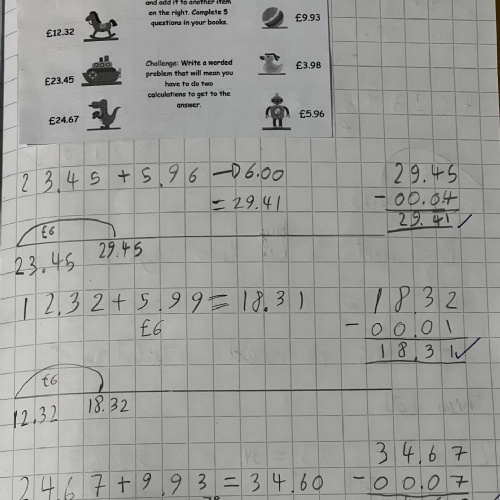 and add it to another item
on the right. Complete 5
questions in your books.
£12.32
£9.93
£23.45
Challenge: Write a worded
problem that will mean you
have to do two
calculations to get to the
answer.
£3.98
£24.67
£5.96
23.45 + 5.96 → 6.00
= 29.41
29.45
- 00.04
29.41 ✓
£6
23.45 29.45
12.32 + 5.99 = 18.31
£6
18.32
- 00.01
18.31 ✓
£6
12.32 18.32
24.67 + 9.93 = 34.60
34.67
- 00.07